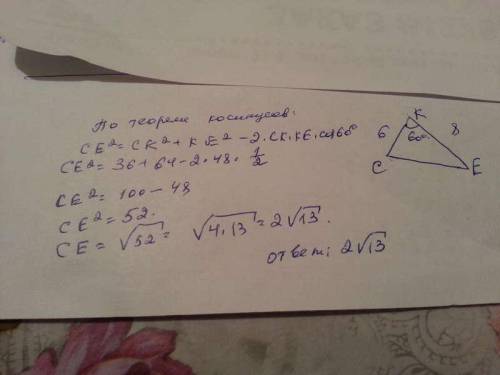 По теореме косинусов:
CE² = CK² + KE² - 2·CK·KE·cos60°
CE² = 36 + 64 - 2·48·1/2
CE² = 100 - 48
CE² = 52.
CE = √52 = √4·13 = 2√13.
ответ: 2√13
K
6
60°
8
C
E